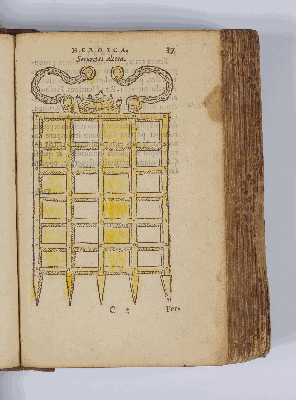 HEROICA. 37
Securitas altera.
C 3 Por-